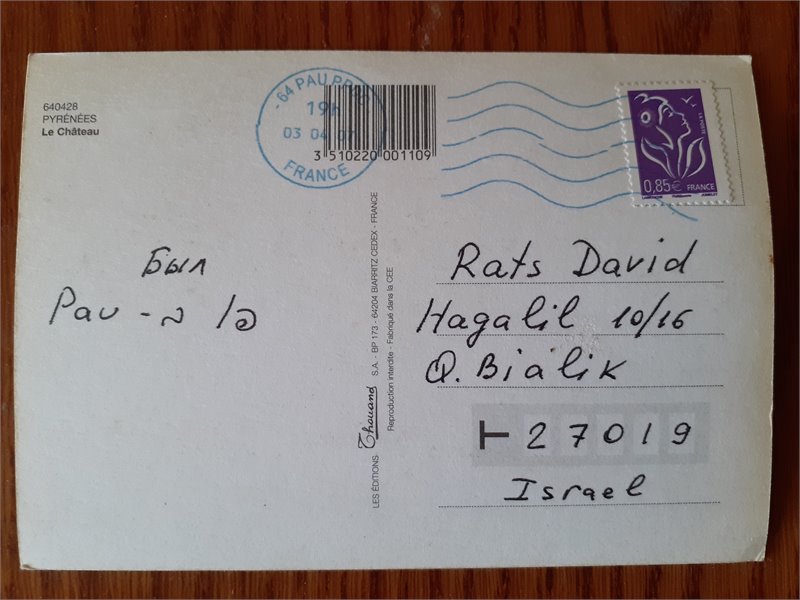 640428
PYRÉNÉES
Le Château
-64 PAU
19h
03 04 07
FRANCE
3 510220 001109
LA POSTE
0,85€ FRANCE
был
Pau -
Rats David
Hagalil 10/16
Q. Bialik
T 27019
Israel
LES ÉDITIONS Thouand S.A. - BP 173 - 64204 BIARRITZ CEDEX - FRANCE
Reproduction interdite - Fabriqué dans la CEE